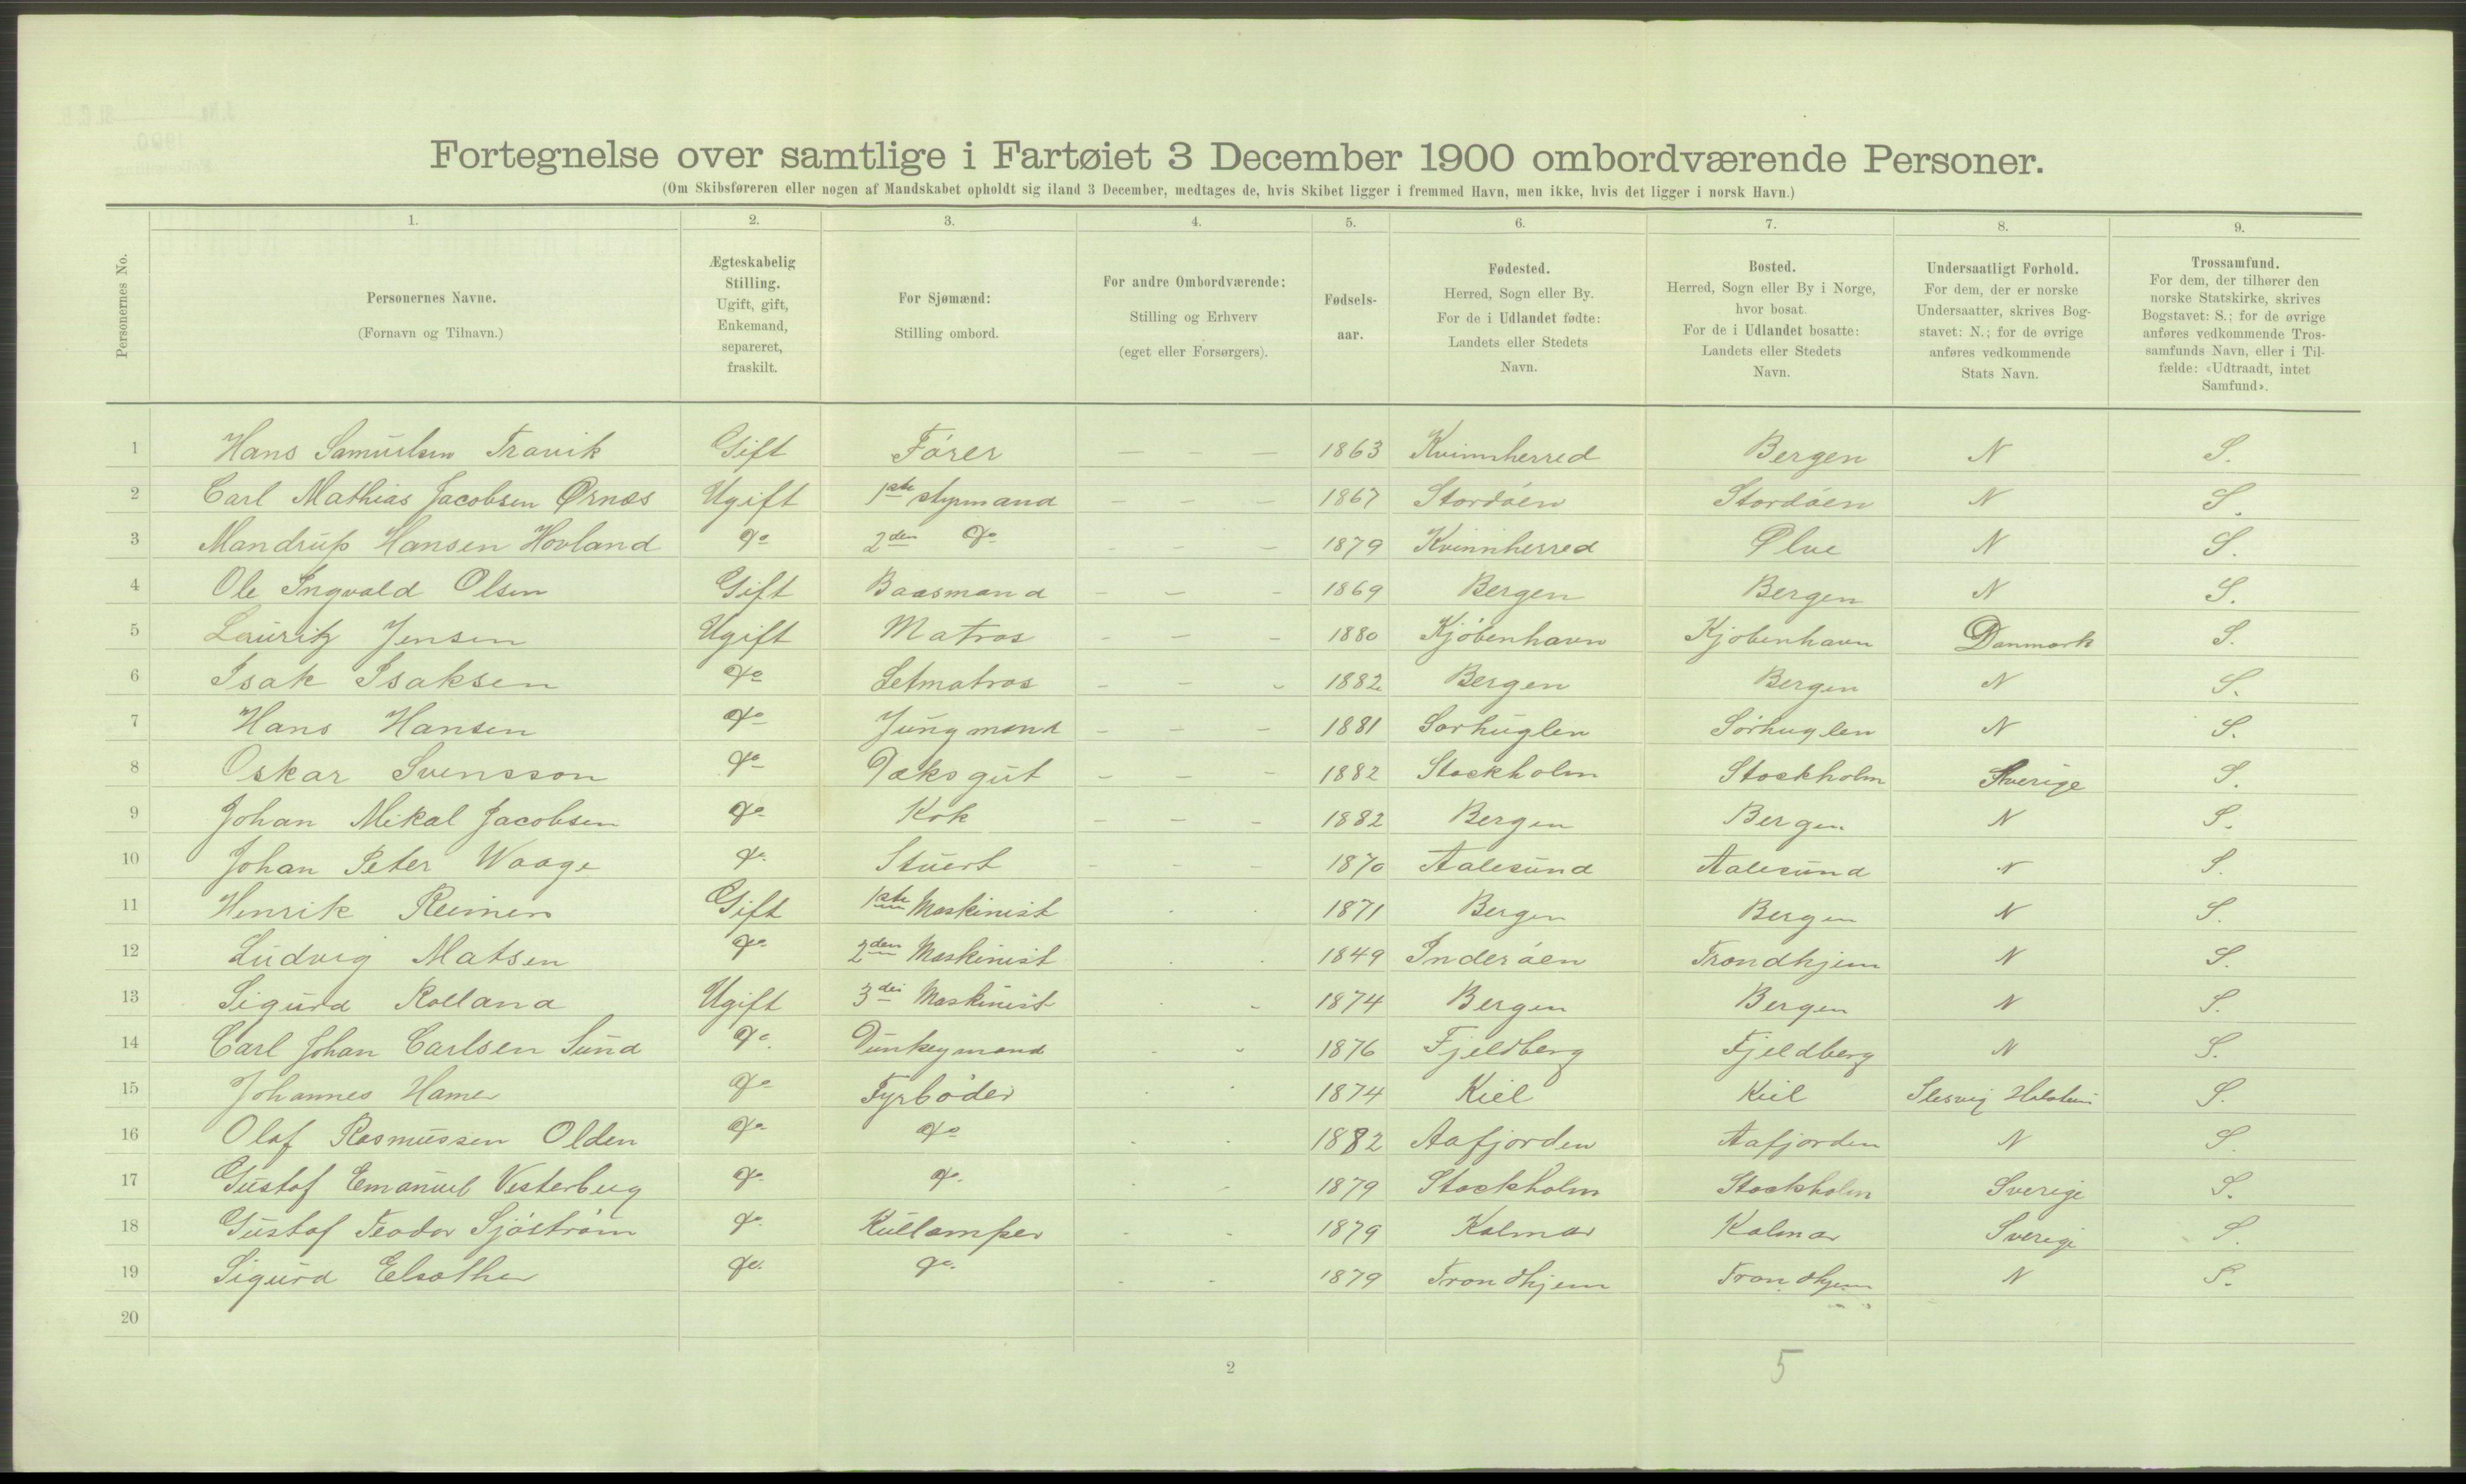 Fortegnelse over samtlige i Fartøiet 3 December 1900 ombordværende Personer.
(Om Skibsføreren eller nogen af Mandskabet opholdt sig iland 3 December, medtages de, hvis Skibet ligger i fremmed Havn, men ikke, hvis det ligger i norsk Havn.)
1. 2. 3. 4. 5. 6. 7. 8. 9.
Personernes No.
Personernes Navne.
(Fornavn og Tilnavn.)
Ægteskabelig
Stilling.
Ugift, gift,
Enkemand,
separeret,
fraskilt.
For Sjømænd:
Stilling ombord.
For andre Ombordværende:
Stilling og Erhverv
(eget eller Forsørgers).
Fødsels-
aar.
Fødested.
Herred, Sogn eller By.
For de i Udlandet fødte:
Landets eller Stedets
Navn.
Bosted.
Herred, Sogn eller By i Norge,
hvor bosat.
For de i Udlandet bosatte:
Landets eller Stedets
Navn.
Undersaatligt Forhold.
For dem, der er norske
Undersaatter, skrives Bog-
stavet: N.; for de øvrige
anføres vedkommende
Stats Navn.
Trossamfund.
For dem, der tilhører den
norske Statskirke, skrives
Bogstavet: S.; for de øvrige
anføres vedkommende Tros-
samfunds Navn, eller i Til-
fælde: «Udtraadt, intet
Samfund».
1 Hans Samuelsen Travik Gift Fører — — — 1863 Kvinnherred Bergen N S.
2 Carl Mathias Jacobsen Ørnæs Ugift 1ste styrmand — — — 1867 Stordöen Stordöen N S.
3 Mandrup Hansen Hovland do 2den do - - - 1879 Kvinnherred Ølve N S.
4 Ole Ingvald Olsen Gift Baasmand - - - 1869 Bergen Bergen N S.
5 Lauritz Jensen Ugift Matros - - - 1880 Kjöbenhavn Kjobenhavn Danmark S.
6 Isak Isaksen do Letmatros - - - 1882 Bergen Bergen N S.
7 Hans Hansen do Jungmand - - - 1881 Sorhuglen Sörhuglen N S.
8 Oskar Svensson do Dæksgut - - - 1882 Stockholm Stockholm Sverige S.
9 Johan Mikal Jacobsen do Kok - - - 1882 Bergen Bergen N S.
10 Johan Peter Waage do Stuert - - - 1870 Aalesund Aalesund N S.
11 Henrik Reimers Gift 1ste Maskinist 1871 Bergen Bergen N S.
12 Ludvig Matsen do 2den Maskinist 1849 Inderöen Trondhjem N S.
13 Sigurd Rolland Ugift 3die Maskinist 1874 Bergen Bergen N S.
14 Carl Johan Carlsen Sund do Dunkeymand 1876 Fjeldberg Fjeldberg N S.
15 Johannes Hamer do Fyrböder 1874 Kiel Kiel Slesvig Holstein S.
16 Olaf Rasmussen Olden do do 1882 Aafjorden Aafjorden N S.
17 Gustaf Emanuel Vesterberg do do 1879 Stockholm Stockholm Sverige S.
18 Gustaf Teodor Sjöström do Kullemper 1879 Kalmar Kalmar Sverige S.
19 Sigurd do do 1879 Trondhjem Trondhjem N S.
20
2 5